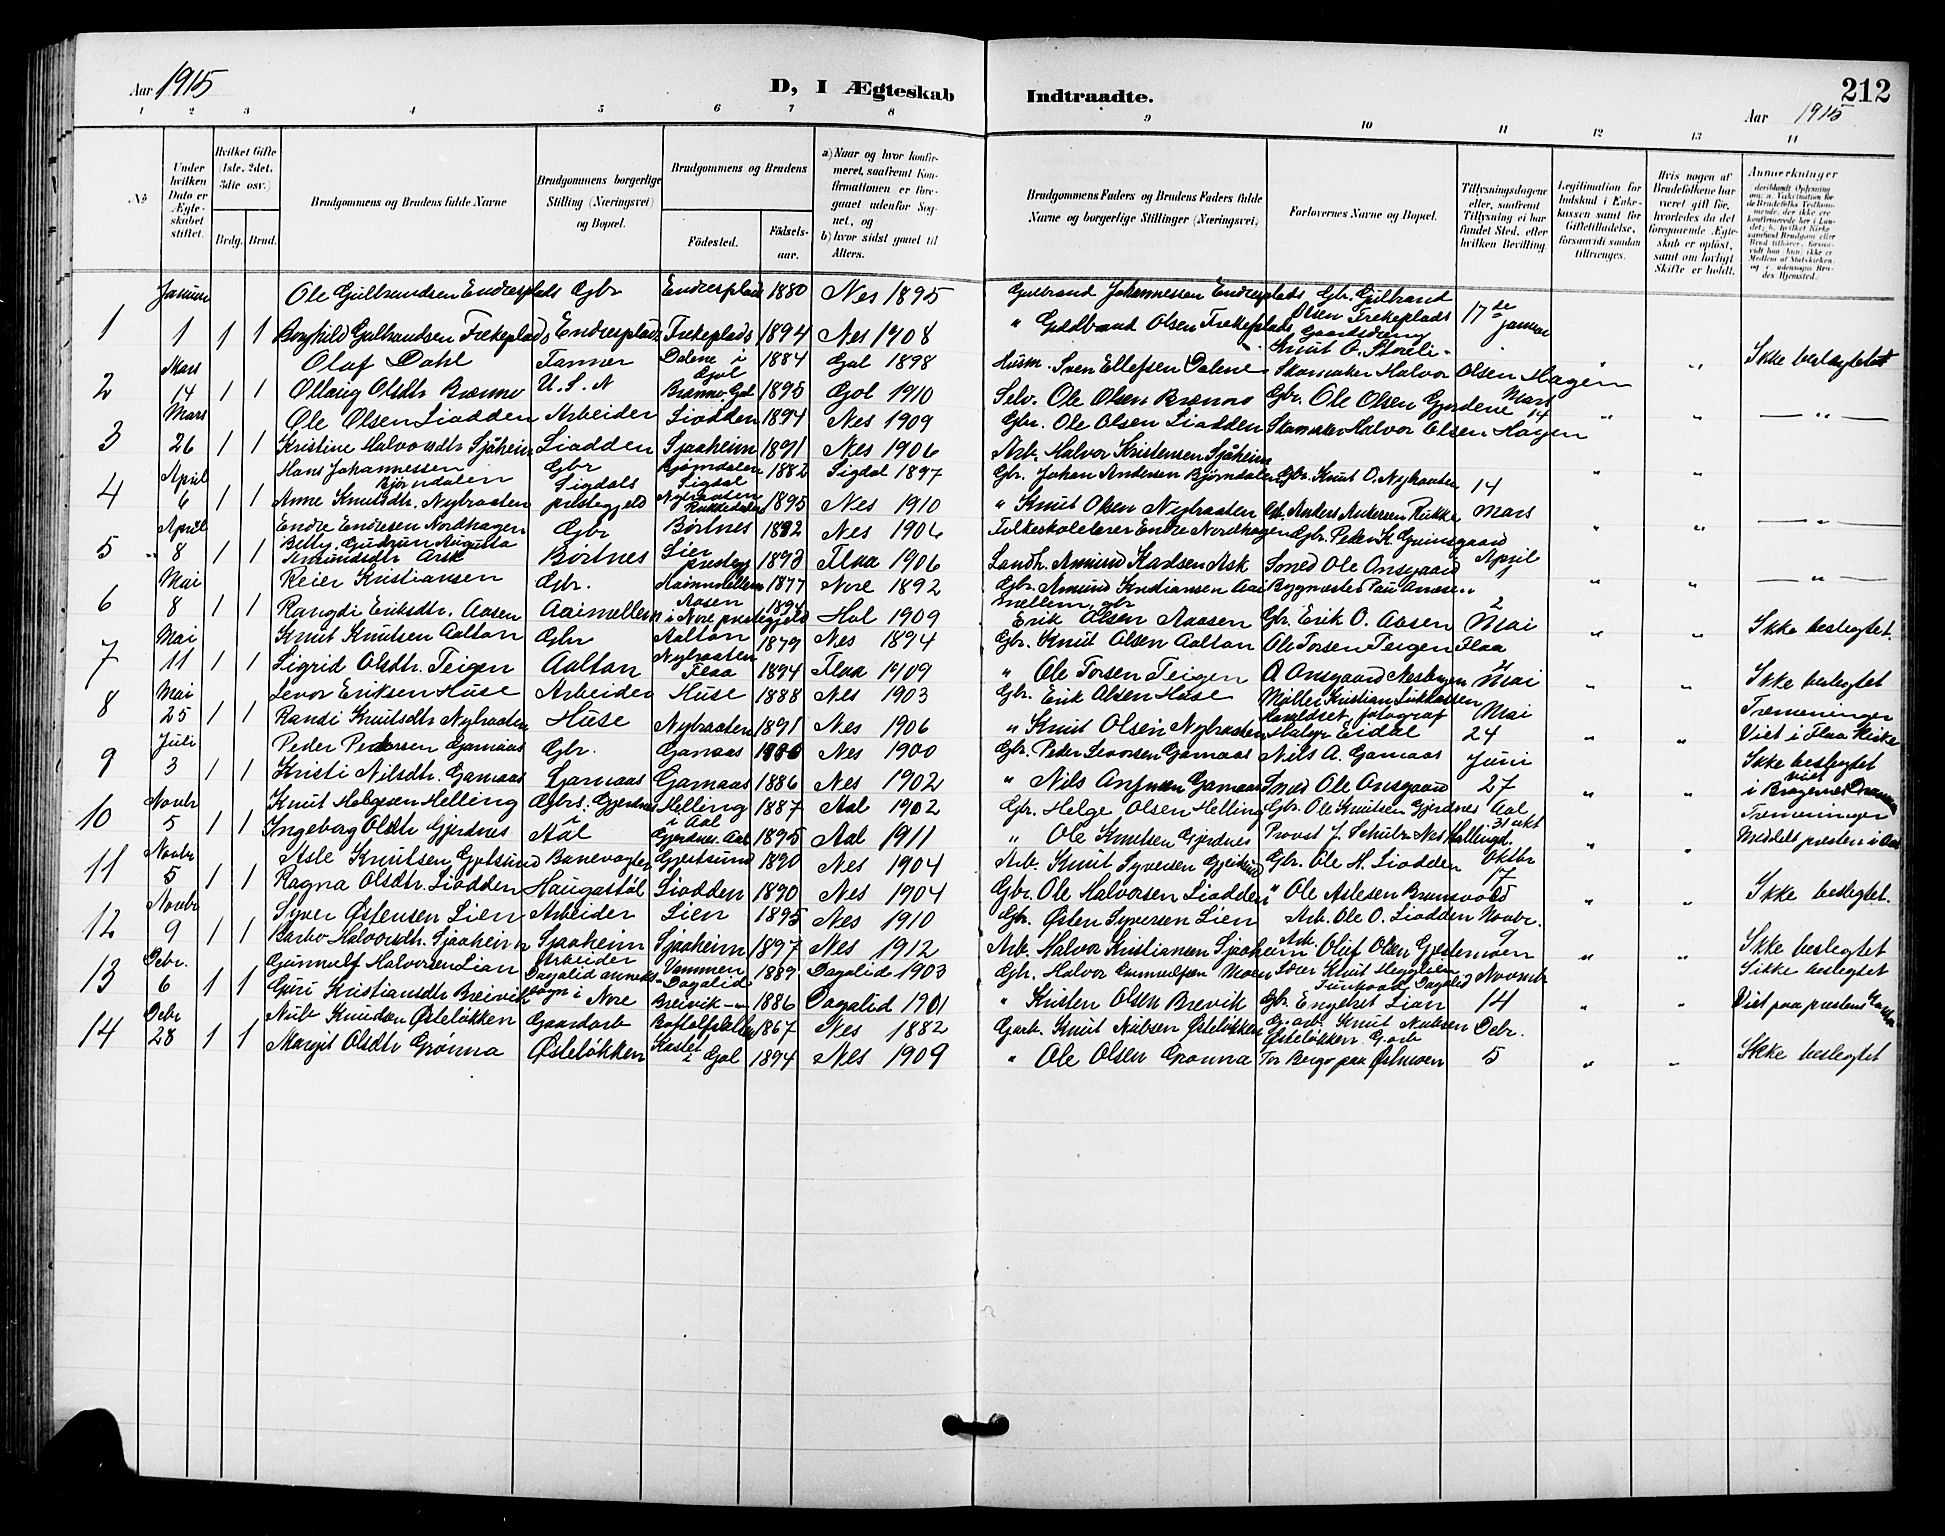 Aar 1915
D, I Ægteskab Indtraadte.
212
Aar 1915
1 2 3 4 5 6 7 8 9 10 11 12 13 14
№
Under hvilken Dato er Ægteskabet stiftet.
Hvilket Gifte (1ste, 2det, 3die osv.)
Brdg. Brud.
Brudgommens og Brudens fulde Navne
Brudgommens borgerlige Stilling (Næringsvei) og Bopæl.
Brudgommens og Brudens
Födested. Födselsaar.
a) Naar og hvor konfirmeret, saafremt Konfirmationen er foregaaet udenfor Sognet, og
b) hvor sidst gaaet til Alters.
Brudgommens Faders og Brudens Faders fulde Navne og borgerlige Stillinger (Næringsvei)
Forlovernes Navne og Bopæl.
Tillysningsdagene eller, saafremt Tillysning ei har fundet Sted, efter hvilken Bevilling.
Legitimation for Indskud i Enkekassen samt for Giftetilladelse, forsaavidt saadan tiltrænges.
Hvis nogen af Brudefolkene har været gift för, hvorledes da det foregaaende Ægteskab er oplöst, samt om lovligt Skifte er holdt.
Anmerkninger
Januar Ole Gulbrandsen Endresplads Gbr Endresplads 1880 Nes 1895 Gulbrand Johannessen Endresplads Gbr. Gulbrand
1 1 1 1 Borghild Gulbrandsen Frekeplads Endresplads Frekeplads 1894 Nes 1908 " Guldbrand Olsen Frekeplads Olsen Frekeplads 17de Januar
Mars Olaf Dahl Tanner Dalene i Gol 1884 Gol 1898 Husm. Sven Ellefsen Dalene Knut O. Skomaker Halvor Olsen Hagen " " Ikke beslægtet
2 14 1 1 Ollaug Olsdtr Brænno U.S.N Brænno Gol 1895 Gol 1910 Selv. Ole Olsen Brænno Gbr. Ole Olsen Gjordene Mars 14
Mars Ole Olsen Liodden Arbeider Liodden 1894 Nes 1909 Gbr. Ole Olsen Liodden Skomaker Halvor Olsen Hagen " " — " —
3 26 1 1 Kristine Halvorsdtr Sjåheim Liodden Sjaaheim 1891 Nes 1906 Arb. Halvor Kristensen Sjåheim
April Hans Johannessen Bjørndalen Gbr Bjørndalen Sigdal 1882 Sigdal 1897 Gbr. Johan Andersen Bjørndalen Gbr. Knut O. Nybraaten " "
4 6 1 1 Anne Knutsdtr. Nybraaten Sigdals prestegjeld Nybraaten Rukkedalen 1895 Nes 1910 " Knut Olsen Nybraaten Gb. Anders Ankersen Rukke 14 Mars
April Endre Endresen Nordhagen Gbr Børtnes 1892 Nes 1906 Folkeskolelærer Endre Nordhagen Gbr. Peder K. Grimsgaard " " — " —
5 8 1 1 Betty Gudrun Augusta Amundsdtr Ask Børtnes Lier presteg 1893 Flaa 1906 Landh. Amund Karlsen Ask Smed Ole Onsgaard April
Mai Reier Kristiansen Gbr. 1877 Nore 1892 Gbr. Amund Kristiansen " " — " —
6 8 1 1 Rangdi Eriksdtr. Aasen Aaimellem Aasen i Nore prestegjeld 1894 Hol 1909 Erik Olsen Aaasen Gbr. Erik O. Aasen 2 Mai Ikke beslegtet.
Mai Knut Knutsen Aalton Gbr Aalton 1879 Nes 1894 Gbr. Knut Olsen Aalton Ole Torsen Teigen Flaa " "
7 11 1 1 Sigrid Olsdtr. Teigen Aalton Nybraaten Flaa 1894 Flaa 1909 " Ole Torsen Teigen O Onsgaard Nesbyen Mai Ikke beslegtet
Mai Levor Eriksen Huse Arbeider Huse 1888 Nes 1903 Gbr. Erik Olsen Huse Møller Kristian Lukkassen " "
8 25 1 1 Randi Knutsdtr Nybraaten Huse Nybraaten 1891 Nes 1906 " Knut Olsen Nybraaten Haraldset, fotograf Halvor Eidal Mai 24 Tremeninger Viet i Flaa Kirke
Juli Peder Pedersen Gamaas Gbr. Gamaas 1886 Nes 1900 Gbr. Peder Levorsen Gamaas Nils A. Gamaas Juni " "
9 3 1 1 Kristi Nilsdtr. Gamaas Gamaas Gamaas 1886 Nes 1902 " Nils Gamaas Smed Ole Onsgaard 27 Ikke beslegtet viet i Bragernes Drammen
Novbr Knut Helgesen Helling Gbrs. Gjerdnes Helling i Aal 1887 Aal 1902 Gbr. Helge Olsen Helling Gbr. Ole Knutsen Gjerdnes Aal " "
10 5 1 1 Ingeborg Olsdtr Gjerdnes i Aal Gjerdnes Aal 1895 Aal 1911 " Ole Knutsen Gjerdnes Provst J. Schulz Nes Hallingd. 31 okt Tremeninger Meddelt presten i Aal
Novbr Asle Knutsen Gjetsund Banevogter Gjertsund 1890 Nes 1904 Arb. Knut Syversen Gbr. Ole H. Liodden Oktbr " "
11 5 1 1 Ragna Olsdtr. Liodden Haugastøl Liodden 1890 Nes 1904 Gbr. Ole Halvorsen Liodden " Ole Aslesen Brunsvold 17 Ikke beslegtet.
Novbr Syver Østensen Lien Arbeider Lien 1895 Nes 1910 Gbr. Østen Syversen Lien Arb. Ole O. Liodden Novbr. " "
12 9 1 1 Barbo Halvorsdtr. Sjaaheim Sjaaheim Sjaaheim 1897 Nes 1912 Arb. Halvor Kristiansen Sjaaheim Arb. Oluf Olsen Gjedemoen 9 Ikke beslegtet
Debr. Gunnulf Halvorsen Lian Arbeider Vammen Dagalid 1889 Dagalid 1903 Gbr. Halvor Gunnulfsen Moen Knut " " Ikke beslegtet
13 6 1 1 Guri Kristiansdtr Breivik Dagalid anneks sogn i Nore Breivik — " 1886 Dagalid 1901 " Kristen Olsen Brevik Gbr Engebret Lian Novembr 14 Viet paa prestens Kontor
Debr Nils Knudsen Østeløkken Gaardarb 1867 Nes 1882 Garb. Knut Nielsen Østeløkken G.arb. Knut Nielsen Debr. " "
14 28 1 1 Margit Olsdtr Grønna Østeløkken Kaslet i Gol 1894 Nes 1909 " Ole Olsen Grønna Østeløkken G.arb Tor Berg paa Østmoen 5 " " Ikke beslegtet